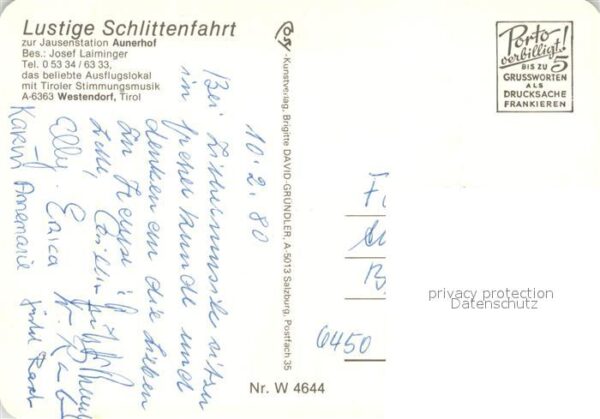 Lustige Schlittenfahrt
zur Jausenstation Aunerhof
Bes.: Josef Laiminger
Tel. 0 53 34 / 63 33,
das beliebte Ausflugslokal
mit Tiroler Stimmungsmusik
A-6363 Westendorf, Tirol
10.2.80
Bei Zithermusik sitzen
in froher Runde und
denken an die Lieben
zu Hause
Elly Erica
Karin Annemarie
-Kunstverlag, Brigitte DAVID-GRÜNDLER, A-5013 Salzburg, Postfach 35
Porto
verbilligt!
BIS ZU 5
GRUSSWORTEN
ALS
DRUCKSACHE
FRANKIEREN
6450
privacy protection
Datenschutz
Nr. W 4644